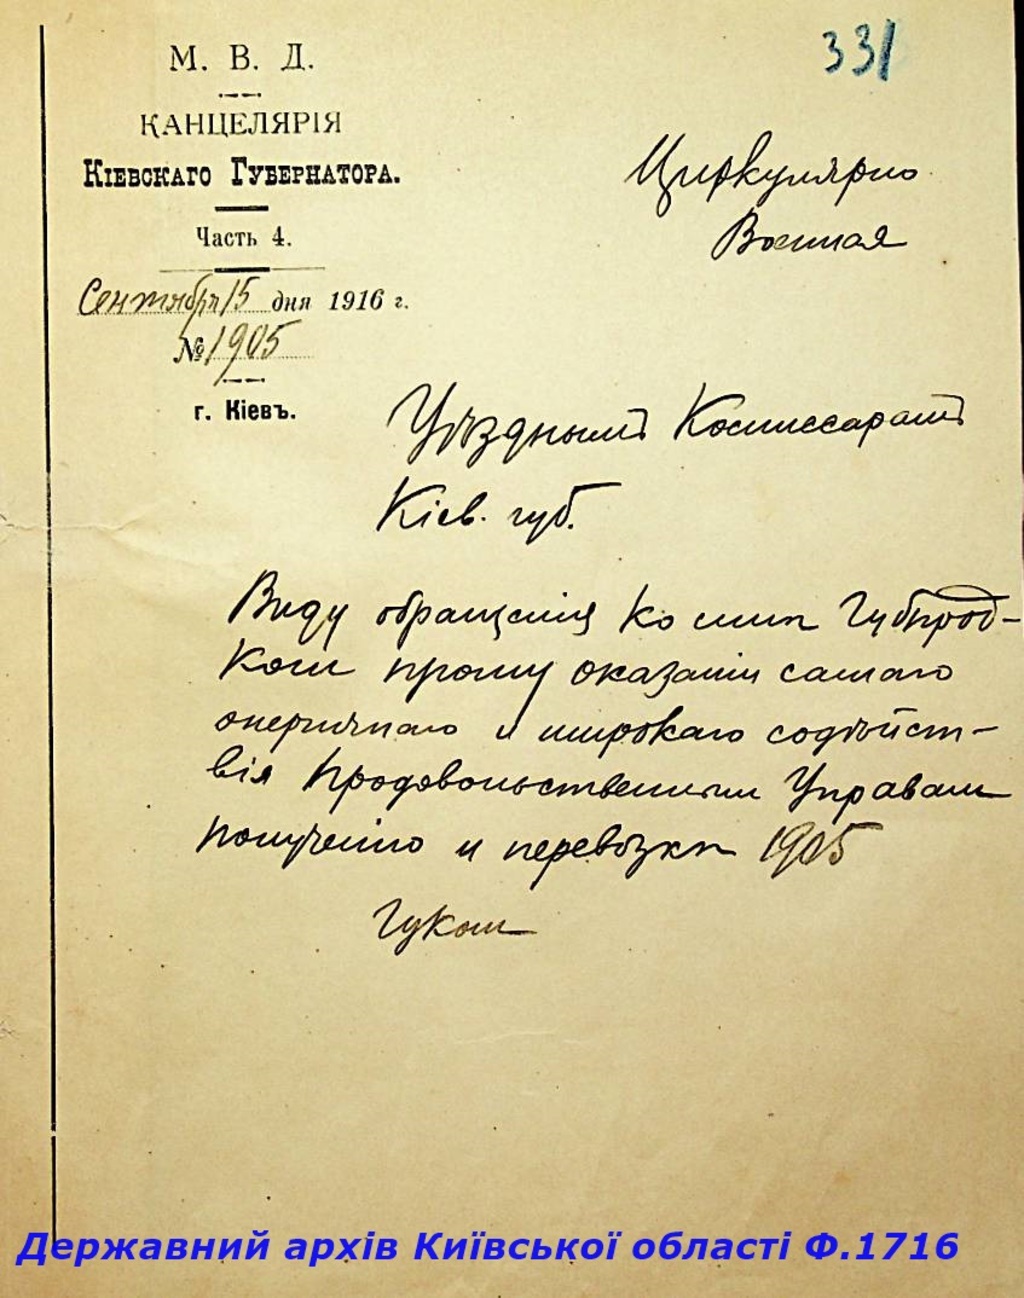 М. В. Д.
КАНЦЕЛЯРІЯ
КІЕВСКАГО ГУБЕРНАТОРА.
Часть 4.
Сентября 15 дня 1916 г.
№ 1905
г. Кіевъ.
331
Циркулярно
Военная
Уѣзднымъ Комиссарамъ
Кіев. губ.
Виду обращенія ко мнѣ Губпрод-
ком прошу оказанія самаго
энергичнаго и широкаго содѣйст-
вія продовольственным Управам
полученію и перевозкѣ 1905
Державний архів Київської області Ф.1716